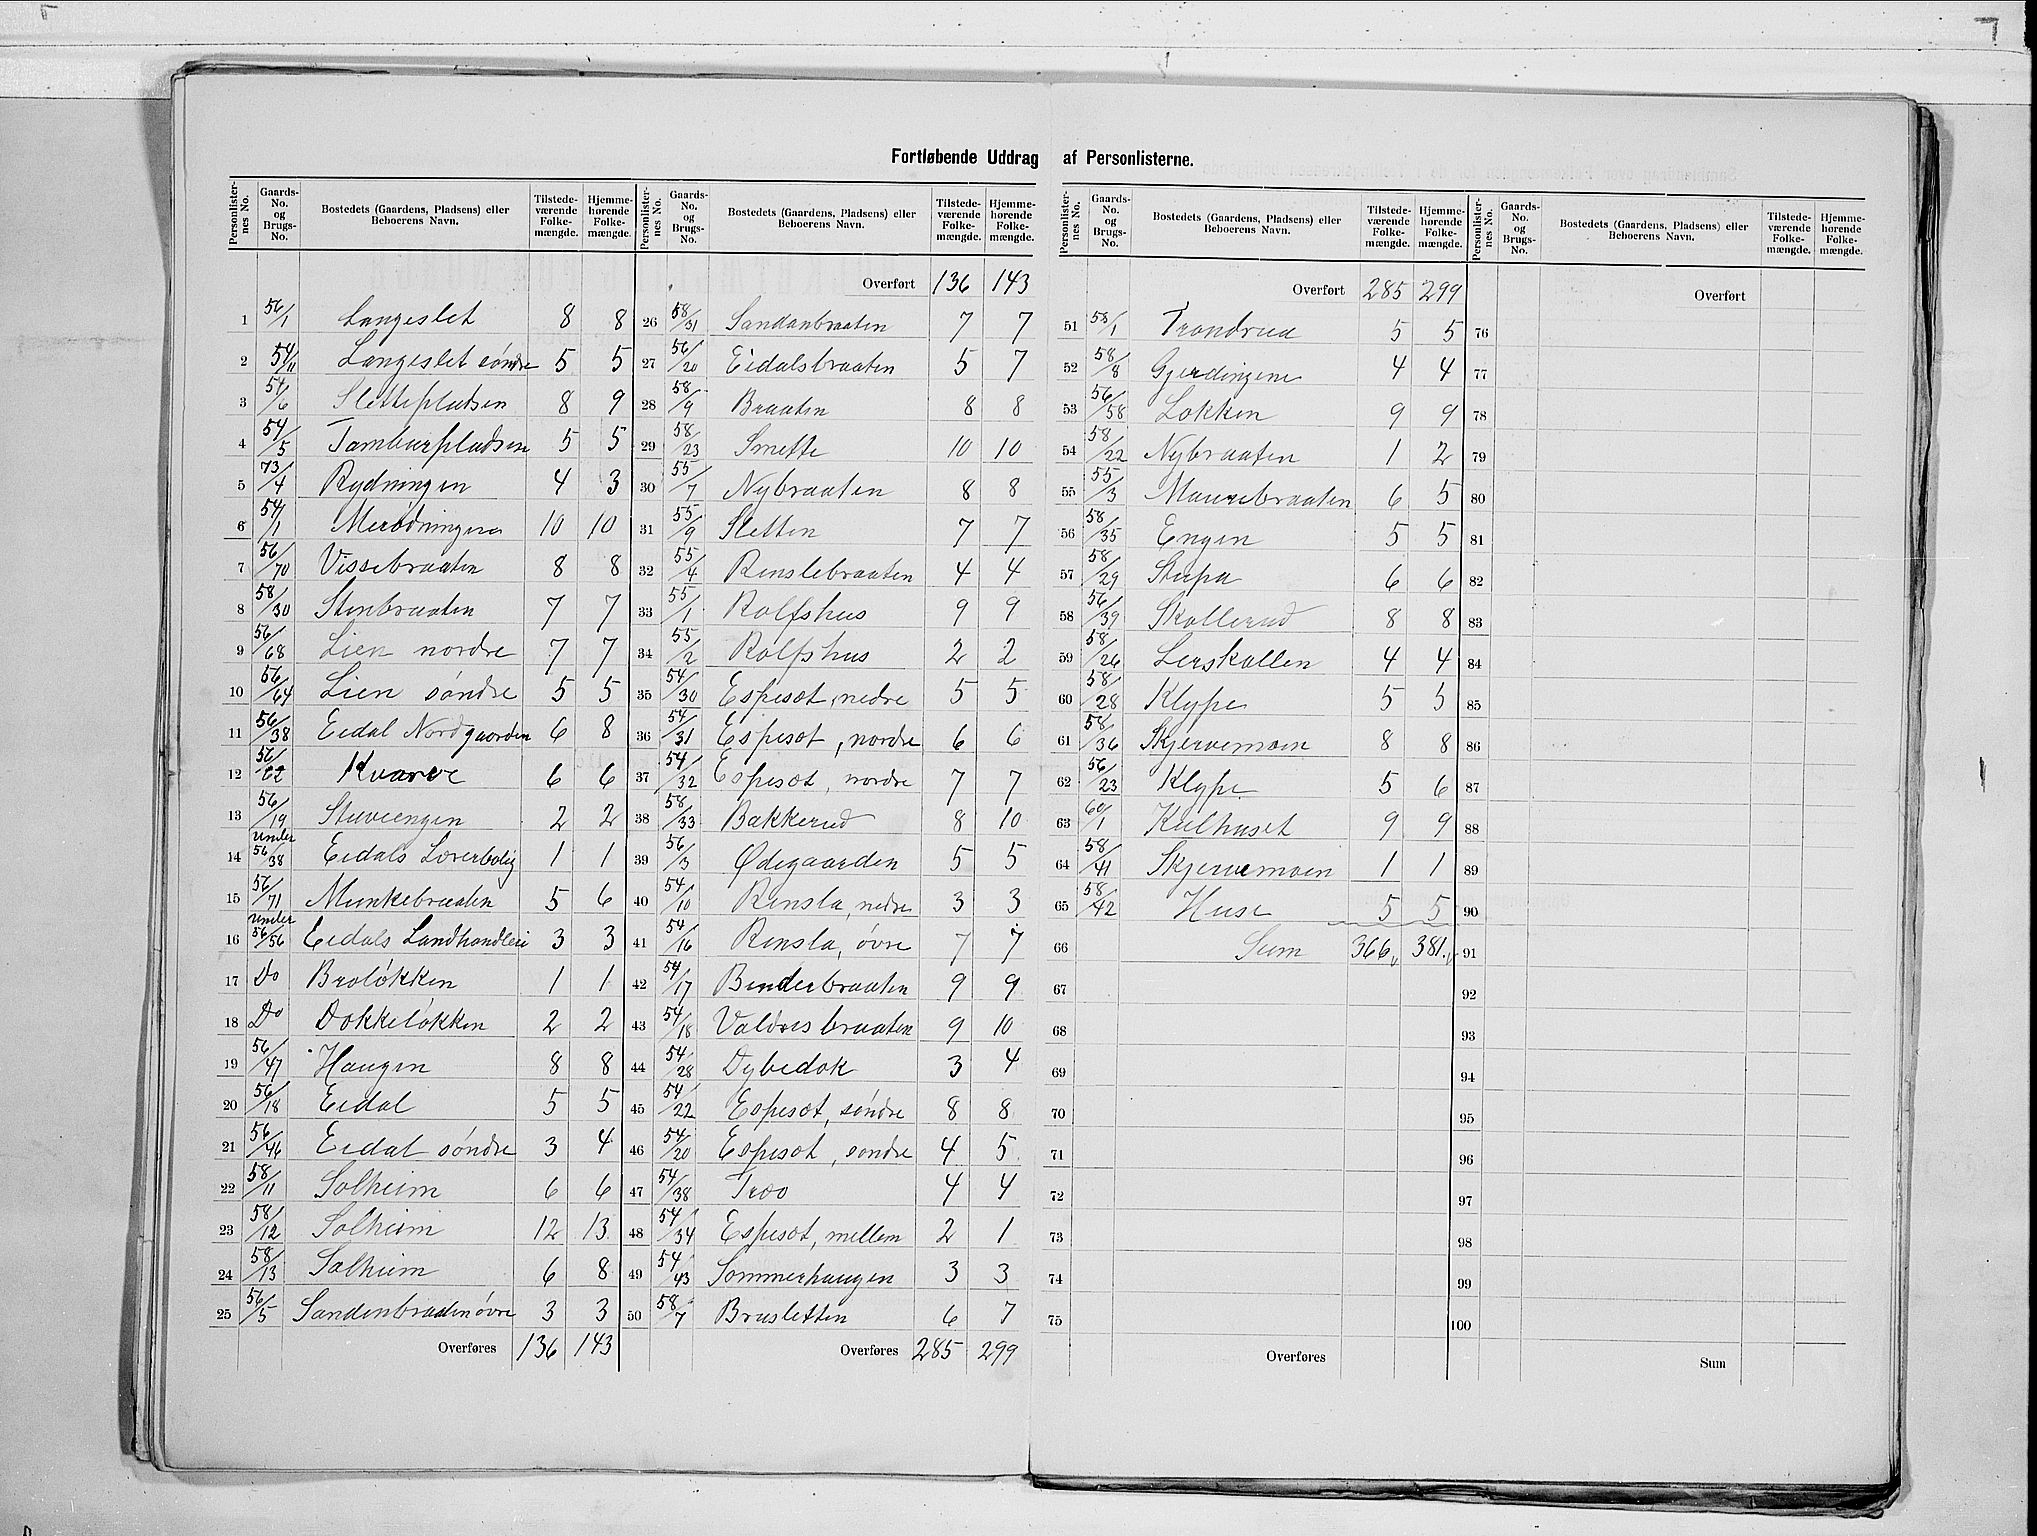 Fortløbende Uddrag af Personlisterne.
Personlister-nes No. Gaards-No. og Brugs-No. Bostedets (Gaardens, Pladsens) eller Beboerens Navn. Tilstede-værende Folke-mængde. Hjemme-hørende Folke-mængde.
1 56/1 Langeslet 8 8
2 54/11 Langeslet söndre 5 5
3 54/6 Sletteplatsen 8 9
4 54/5 Tamburpladsen 5 5
5 73/4 Rydningen 4 3
6 54/1 Merodningen 10 10
7 56/70 Vissebraaten 8 8
8 58/30 Stenbraaten 7 7
9 56/68 Lien nordre 7 7
10 56/64 Lien söndre 5 5
11 56/38 Eidal Nordgaarden 6 8
12 56/22 Kvarve 6 6
13 56/19 Stuveengen 2 2
14 under 56/38 Eidals Lærerbolig 1 1
15 56/71 Munkebraaten 5 6
16 under 56/56 Eidals Landhandleri 3 3
17 Do Brolökken 1 1
18 Do Dokkelökken 2 2
19 56/47 Haugen 8 8
20 56/18 Eidal 5 5
21 56/46 Eidal söndre 3 4
22 58/11 Solheim 6 6
23 58/12 Solheim 12 13
24 58/13 Solheim 6 8
25 56/5 Sandenbraaten övre 3 3
Overføres 136 143
Personlister-nes No. Gaards-No. og Brugs-No. Bostedets (Gaardens, Pladsens) eller Beboerens Navn. Tilstede-værende Folke-mængde. Hjemme-hørende Folke-mængde.
Overført 136 143
26 58/31 Sandanbraaten 7 7
27 56/20 Eidalsbraaten 5 7
28 58/9 Braaten 8 8
29 58/23 Smette 10 10
30 55/7 Nybraaten 8 8
31 55/9 Sletten 7 7
32 55/4 Renslebraaten 4 4
33 55/1 Rolfshus 9 9
34 55/2 Rolfshus 2 2
35 54/30 Espesæt, nedre 5 5
36 54/31 Espesæt, nordre 6 6
37 54/32 Espesæt, nordre 7 7
38 58/33 Bakkerud 8 10
39 56/3 Ødegaarden 5 5
40 54/10 Rensla, nedre 3 3
41 54/16 Rensla, övre 7 7
42 54/17 Benderbraaten 9 9
43 54/18 Valdresbraaten 9 10
44 54/28 Dybedok 3 4
45 54/22 Espesæt, söndre 8 8
46 54/20 Espesæt, söndre 4 5
47 54/38 Træo 4 4
48 54/34 Espesæt, mellem 2 1
49 54/43 Sommerhaugen 3 3
50 58/7 Brusletten 6 7
Overføres 285 299
Personlister-nes No. Gaards-No. og Brugs-No. Bostedets (Gaardens, Pladsens) eller Beboerens Navn. Tilstede-værende Folke-mængde. Hjemme-hørende Folke-mængde.
Overført 285 299
51 58/1 Trondrud 5 5
52 58/8 Gjerdingene 4 4
53 56/58 Lokken 9 9
54 58/22 Nybraaten 1 2
55 55/3 Maurebraaten 6 5
56 58/35 Engen 5 5
57 58/29 Stupa 6 6
58 56/39 Skollerud 8 8
59 58/26 Lerskallen 4 4
60 58/28 Klype 5 5
61 58/36 Skjervemoen 8 8
62 56/23 Klype 5 6
63 60/1 Kulhuset 9 9
64 58/41 Skjervemoen 1 1
65 58/42 Huse 5 5
66 Sum 366 381
67
68
69
70
71
72
73
74
75
Overføres
Personlister-nes No. Gaards-No. og Brugs-No. Bostedets (Gaardens, Pladsens) eller Beboerens Navn. Tilstede-værende Folke-mængde. Hjemme-hørende Folke-mængde.
Overført
76
77
78
79
80
81
82
83
84
85
86
87
88
89
90
91
92
93
94
95
96
97
98
99
100
Sum